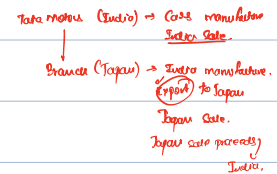 Tata motors (India) → Cars manufacture
India sale.
Branch (Japan) → India manufacture.
Export to Japan
Japan sale.
Japan sale proceeds
India.